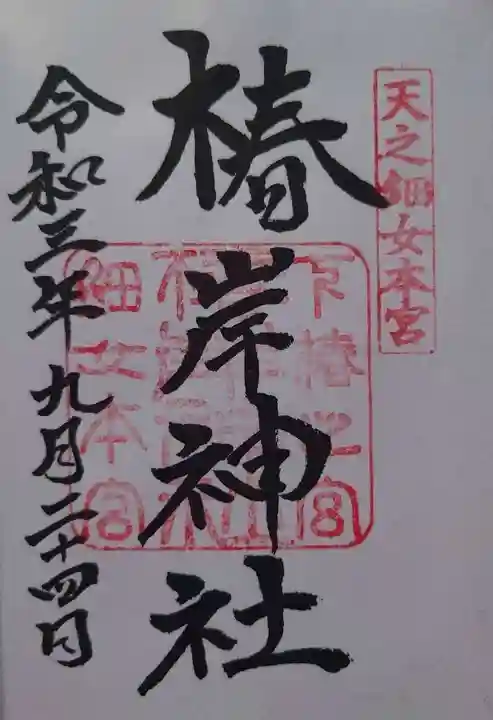 天之鈿女本宮
椿岸神社
令和三年九月二十四日